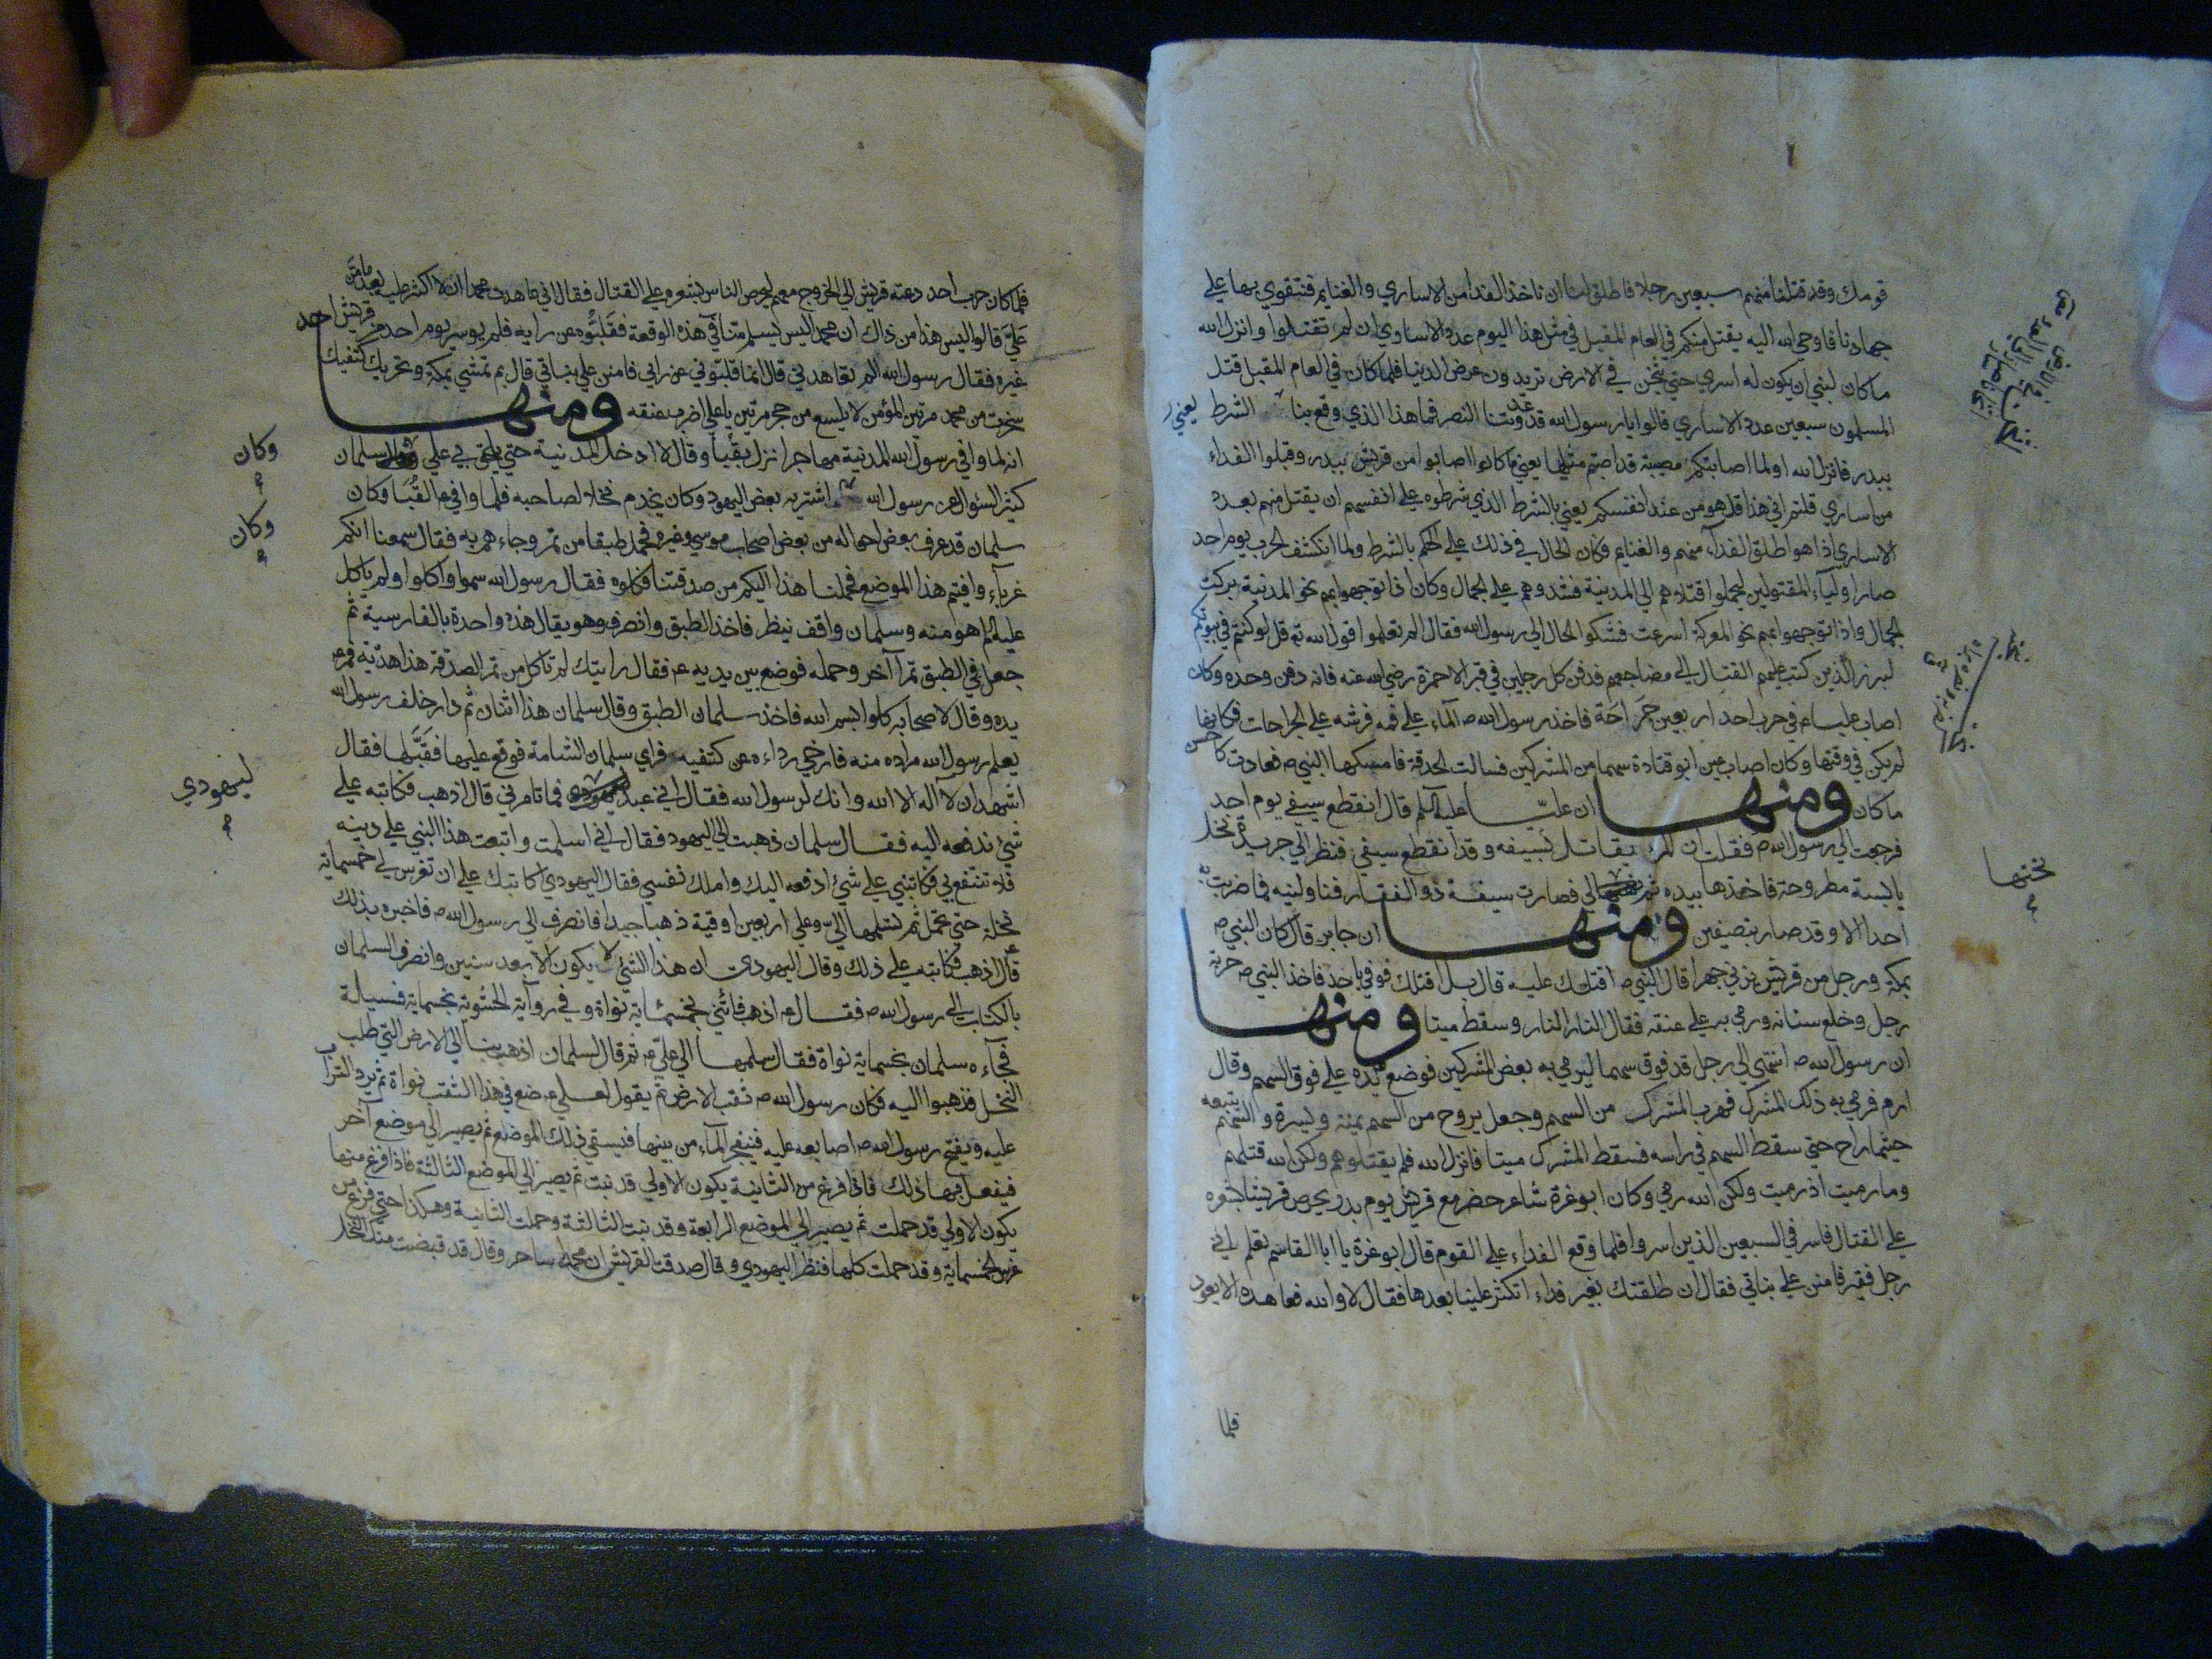 قومك وقد قتلنا منهم سبعين رجلا فاطلق لنا ان ناخذ الفدا من الاساري والغنايم فنتقوي بها علي
جهادنا فاوحي الله اليه يقتل منكم في العام المقبل في مثل هذا اليوم عدد الاساري ان لم تقتلوا وانزل الله
ما كان لنبي ان يكون له اسري حتي يثخن في الارض تريدون عرض الدنيا فلما كان في العام المقبل قتل
المسلمون سبعين عدد الاساري قالوا يا رسول الله قد وعدتنا النصر فما هذا الذي وقع بنا الشرط
ببدر فانزل الله اولما اصابتكم مصيبة قد اصبتم مثليها يعني ما كانوا اصابوا من قريش ببدر وقبلوا الفداء
من اساري قلتم اني هذا قل هو من عند انفسكم يعني بالشرط الذي شرطوه علي انفسهم ان يقتل منهم بعدد
الاساري اذا هو اطلق الفداء منهم والغنايم فكان الحال في ذلك علي الحكم بالشرط ولما انكشف الحرب يوم احد
صار اولياء المقتولين ليحملوا قتلاهم الي المدينة فشدوهم علي الجمال وكان اذا توجهوا بهم نحو المدينة بركت
الجمال واذا توجهوا بهم نحو المعركة اسرعت فشكوا الحال الي رسول الله فقال الم تعلموا قول الله تع قل لو كنتم في بيوتكم
لبرز الذين كتب عليهم القتال الي مضاجعهم فدفن كل رجلين في قبر الا حمزة رضي الله عنه فانه دفن وحده وكان
اصاب عليا ع في حرب احد اربعين جراحة فاخذ رسول الله ص الماء علي فمه فرشه علي الجراحات فكانها
لم يكن في وقتها وكان اصاب عين ابو قتادة سهما من المشركين فسالت الحدقة فامسكها النبي ص فعادت كاحسن
ما كان ومنها ان عليا عليه السلم قال انقطع سيفي يوم احد
فرجعت الي رسول الله ص فقلت ان المرء يقاتل بسيفه وقد انقطع سيفي فنظر الي جريدة نخل
يابسة مطروحة فاخذها بيده ثم الي فصارت سيفه ذو الفقار فناولنيه فما ضربت به
احدا الا وقد صار بنصيفين ومنها ان جابر قال كان النبي ص
بمكة ورجل من قريش يزني جهرا قال النبي ص اقتلك عليه قال بل اقتلك فوفي باحد فاخذ النبي ص حربة
رجل وخلع سنانه ورمي به علي عنقه فقال النار النار وسقط ميتا ومنها
ان رسول الله ص انتهي الي رجل قد فوق سهما ليرمي به بعض المشركين فوضع يده علي فوق السهم وقال
ارم فرمي به ذلك المشرك فهرب المشرك من السهم وجعل يروح من السهم يمنة ويسرة والسهم يتبعه
حيثما راح حتي سقط السهم في راسه فسقط المشرك ميتا فانزل الله فلم يقتلوهم ولكن الله قتلهم
وما رميت اذ رميت ولكن الله رمي وكان ابو غرة شاعر حضر مع قريش يوم بدر يحرص قريشا بشعره
علي القتال فاسر في السبعين الذين اسروا فلما وقع الفداء علي القوم قال ابو غرة يا ابا القاسم تعلم اني
رجل فقير فامنن علي بناتي فقال ان طلقتك بغير فداء اتكثر علينا بعدها فقال لا والله فعاهده الا يعود
فلما
نحتها
فلما كان حرب احد دعته قريش الي الخروج معهم ليحرص الناس بشعره علي القتال فقال اني عاهدت محمدا ان لا اكثر عليه بعد ما من
علي قالوا ليس هذا من ذاك ان محمدا ليس يسلم منا في هذه الوقعة فقلبوه عن رايه فلم يوسر يوم احد من قريش احد
غيره فقال رسول الله الم تعاهدني قال انما قلبوني عن رايي فامنن علي بناتي قال بم تمشي بمكة وتحريك كتفيك
سخرت من محمد مرتين المؤمن لا يلسع من حجر مرتين يا علي اضرب عنقه ومنها
انه لما وافي رسول الله المدينة مهاجرا نزل بقبا وقال لا ادخل المدينة حتي يلحق بي علي وكان سلمان
كثير السؤال عن رسول الله اشتريه بعض اليهود وكان يخدم نخلا لصاحبه فلما وافي ع القبا وكان
سلمان قد عرف بعض احواله من بعض اصحاب موسي وغيره فحمل طبقا من تمر وجاءهم به فقال سمعنا انكم
غرباء وافيتم هذا الموضع فحملنا هذا اليكم من صدقتنا فكلوه فقال رسول الله سموا وكلوا ولم ياكل
عليه السلم هو منه وسلمان واقف ينظر فاخذ الطبق وانصرف وهو يقال هذه واحدة بالفارسية ثم
جعل في الطبق تمرا آخر وحمله فوضع بين يديه ع فقال رايتك لم تاكل من تمر الصدقة هذا هدية فمد ع
يده وقال لاصحابه كلوا بسم الله فاخذ سلمان الطبق وقال سلمان هذا اثنان ثم دار خلف رسول الله
يعلم رسول الله مراده منه فارخي رداءه عن كتفيه فراي سلمان الشامة فوقع عليها فقبلها فقال
اشهد ان لا اله الا الله وانك لرسول الله فقال اني عبد ليهودي فما تامرني قال اذهب فكاتبه علي
شيء ندفعه اليه فقال سلمان ذهبت الي اليهود فقال اني اسلمت واتبعت هذا النبي علي دينه
فلا تنتفع بي فكاتبني علي شيء ادفعه اليك واملك نفسي فقال اليهودي اكاتبك علي ان تغرس لي خمسماية
نخلة حتي تحمل ثم تسلمها الي وعلي اربعين اوقية ذهبا جيدا فانصرف الي رسول الله ص فاخبره بذلك
قال اذهب فكاتبه علي ذلك وقال اليهودي ان هذا الشيء لا يكون الا بعد سنين وانصرف السلمان
بالكتاب الي رسول الله ص فقال ع اذهب فاتني بخمسماية نواة وفي رواية الحشوية بخمسماية فسيلة
فجاءه سلمان بخمسماية نواة فقال سلمها الي علي ع ثم قال لسلمان اذهب بنا الي الارض التي طلب
النخل فذهبوا اليه فكان رسول الله ص ثقب الارض ثم يقول لعلي ع ضع في هذا الثقب نواة ثم يرد التراب
عليه ويفتح رسول الله ص اصابعه عليه فينفجر الماء من بينها فيستقي ذلك الموضع ثم يصير الي موضع آخر
فيفعل بها ذلك فاذا فرغ من الثانية يكون الاولي قد نبت ثم يصير الي الموضع الثالثة فاذا فرغ منها
يكون الاولي قد حملت ثم يصير الي الموضع الرابعة وقد نبت الثالثة وحملت الثانية وهكذا حتي فرغ من
غرس الخمسماية وقد حملت كلها فنظر اليهودي وقال صدقت القريش ان محمدا ساحر وقال قد قبضت منك النخل
وكان
وكان
ليهودي